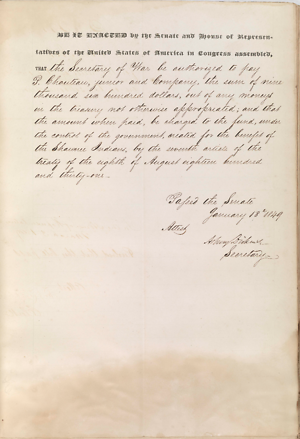 BE IT ENACTED by the Senate and House of Represen-
tatives of the United States of America in Congress assembled,
THAT the Secretary of War be authorized to pay
P. Chouteau, junior and Company, the sum of nine
thousand six hundred dollars, out of any moneys
in the treasury not otherwise appropriated, and that
the amount when paid, be charged to the fund, under
the control of the government, created for the benefit of
the Shawnee Indians, by the seventh article of the
treaty of the eighth of August eighteen hundred
and thirty-one.
Passed the Senate
January 18th 1849
Attest
Secretary